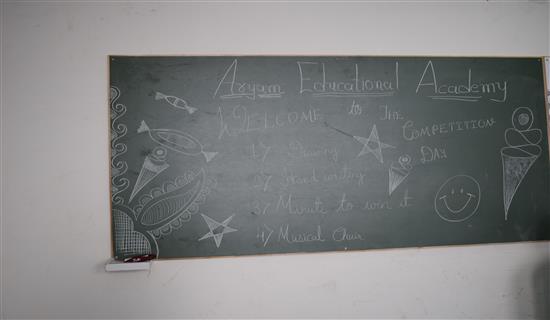 Aryam Educational Academy
WELCOME to THE COMPETITION DAY
1> Drawing
2> Hand writing
3> Minute to win it
4> Musical Chair